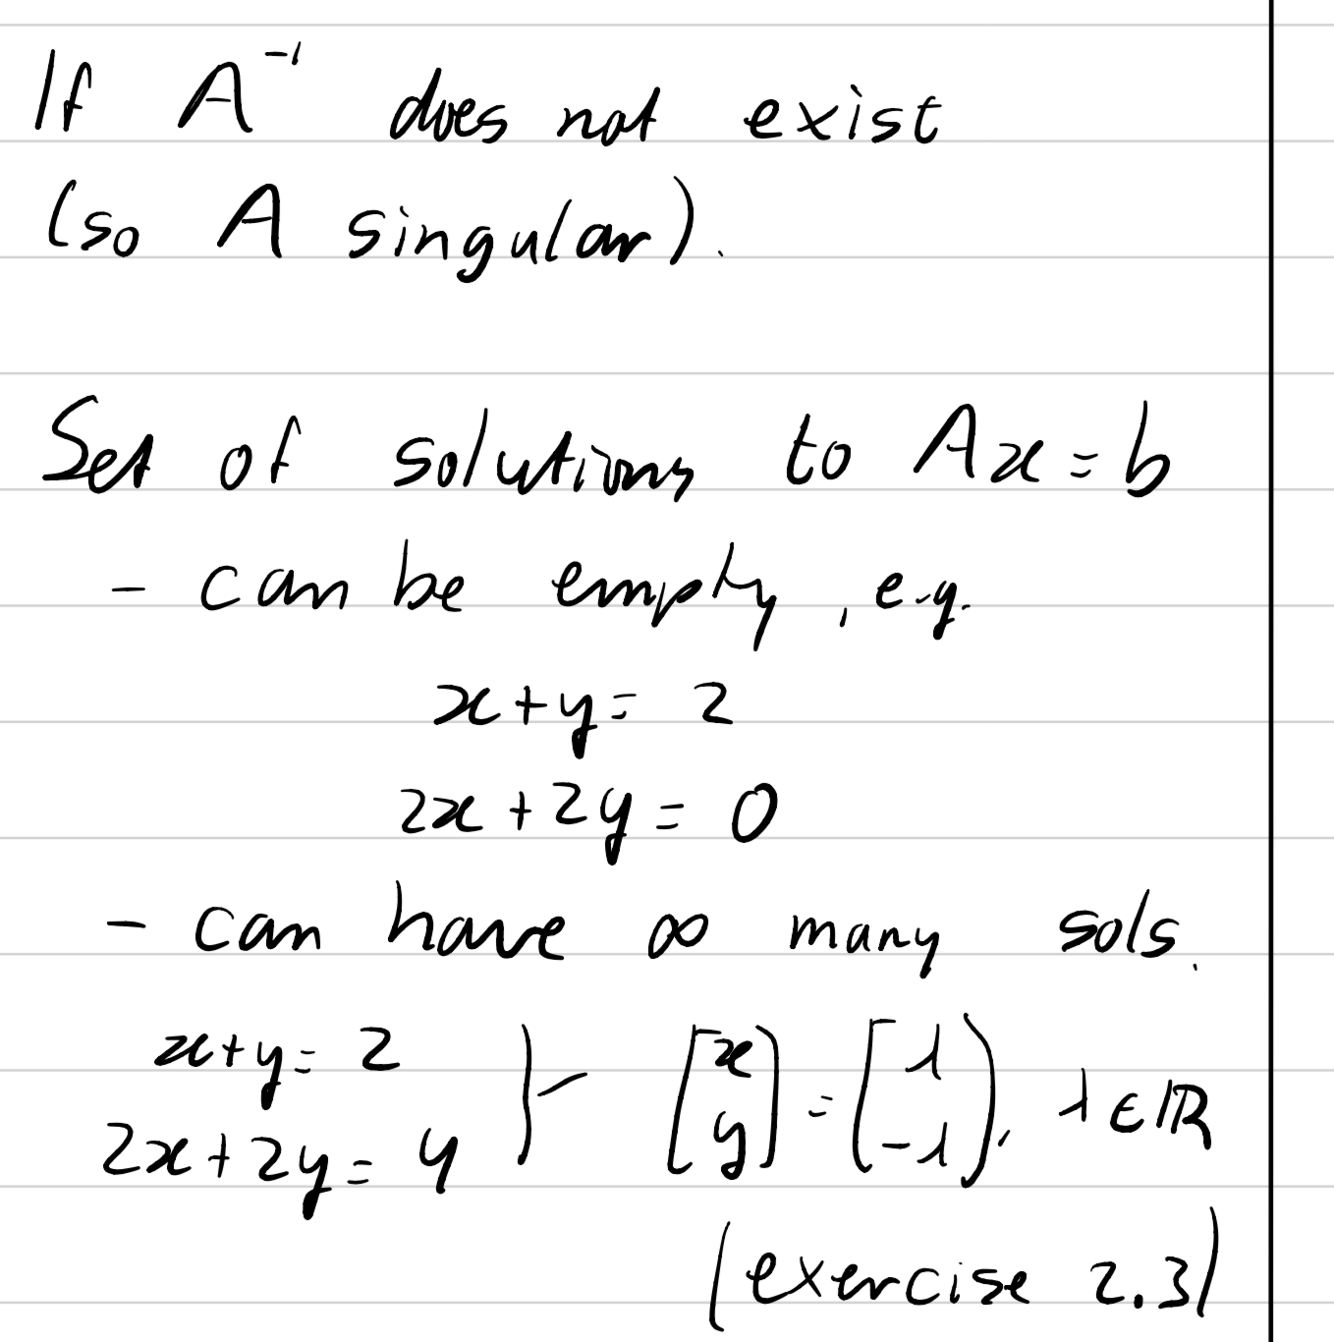 If A⁻¹ does not exist
(so A singular).
Set of solutions to Ax = b
- can be empty, e.g.
x+y = 2
2x + 2y = 0
- can have ∞ many sols.
x+y = 2
2x + 2y = 4 } [x y] = [λ -λ], λ ∈ ℝ
(exercise 2.3)